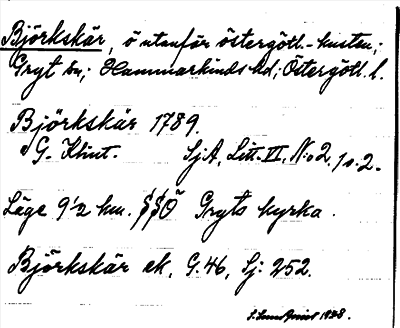 Björkskär, ö utanför östergötl.-kusten,;
Gryt sn; Hammarkinds hd; Östergötl. l.
Björkskär 1789.
G. Klint. SjA, Litt. VI, N:o 2, 1 o. 2.
Läge 9 1/2 km. SSÖ Gryts kyrka.
Björkskär ek. G. 46, Sj: 252.
1928.